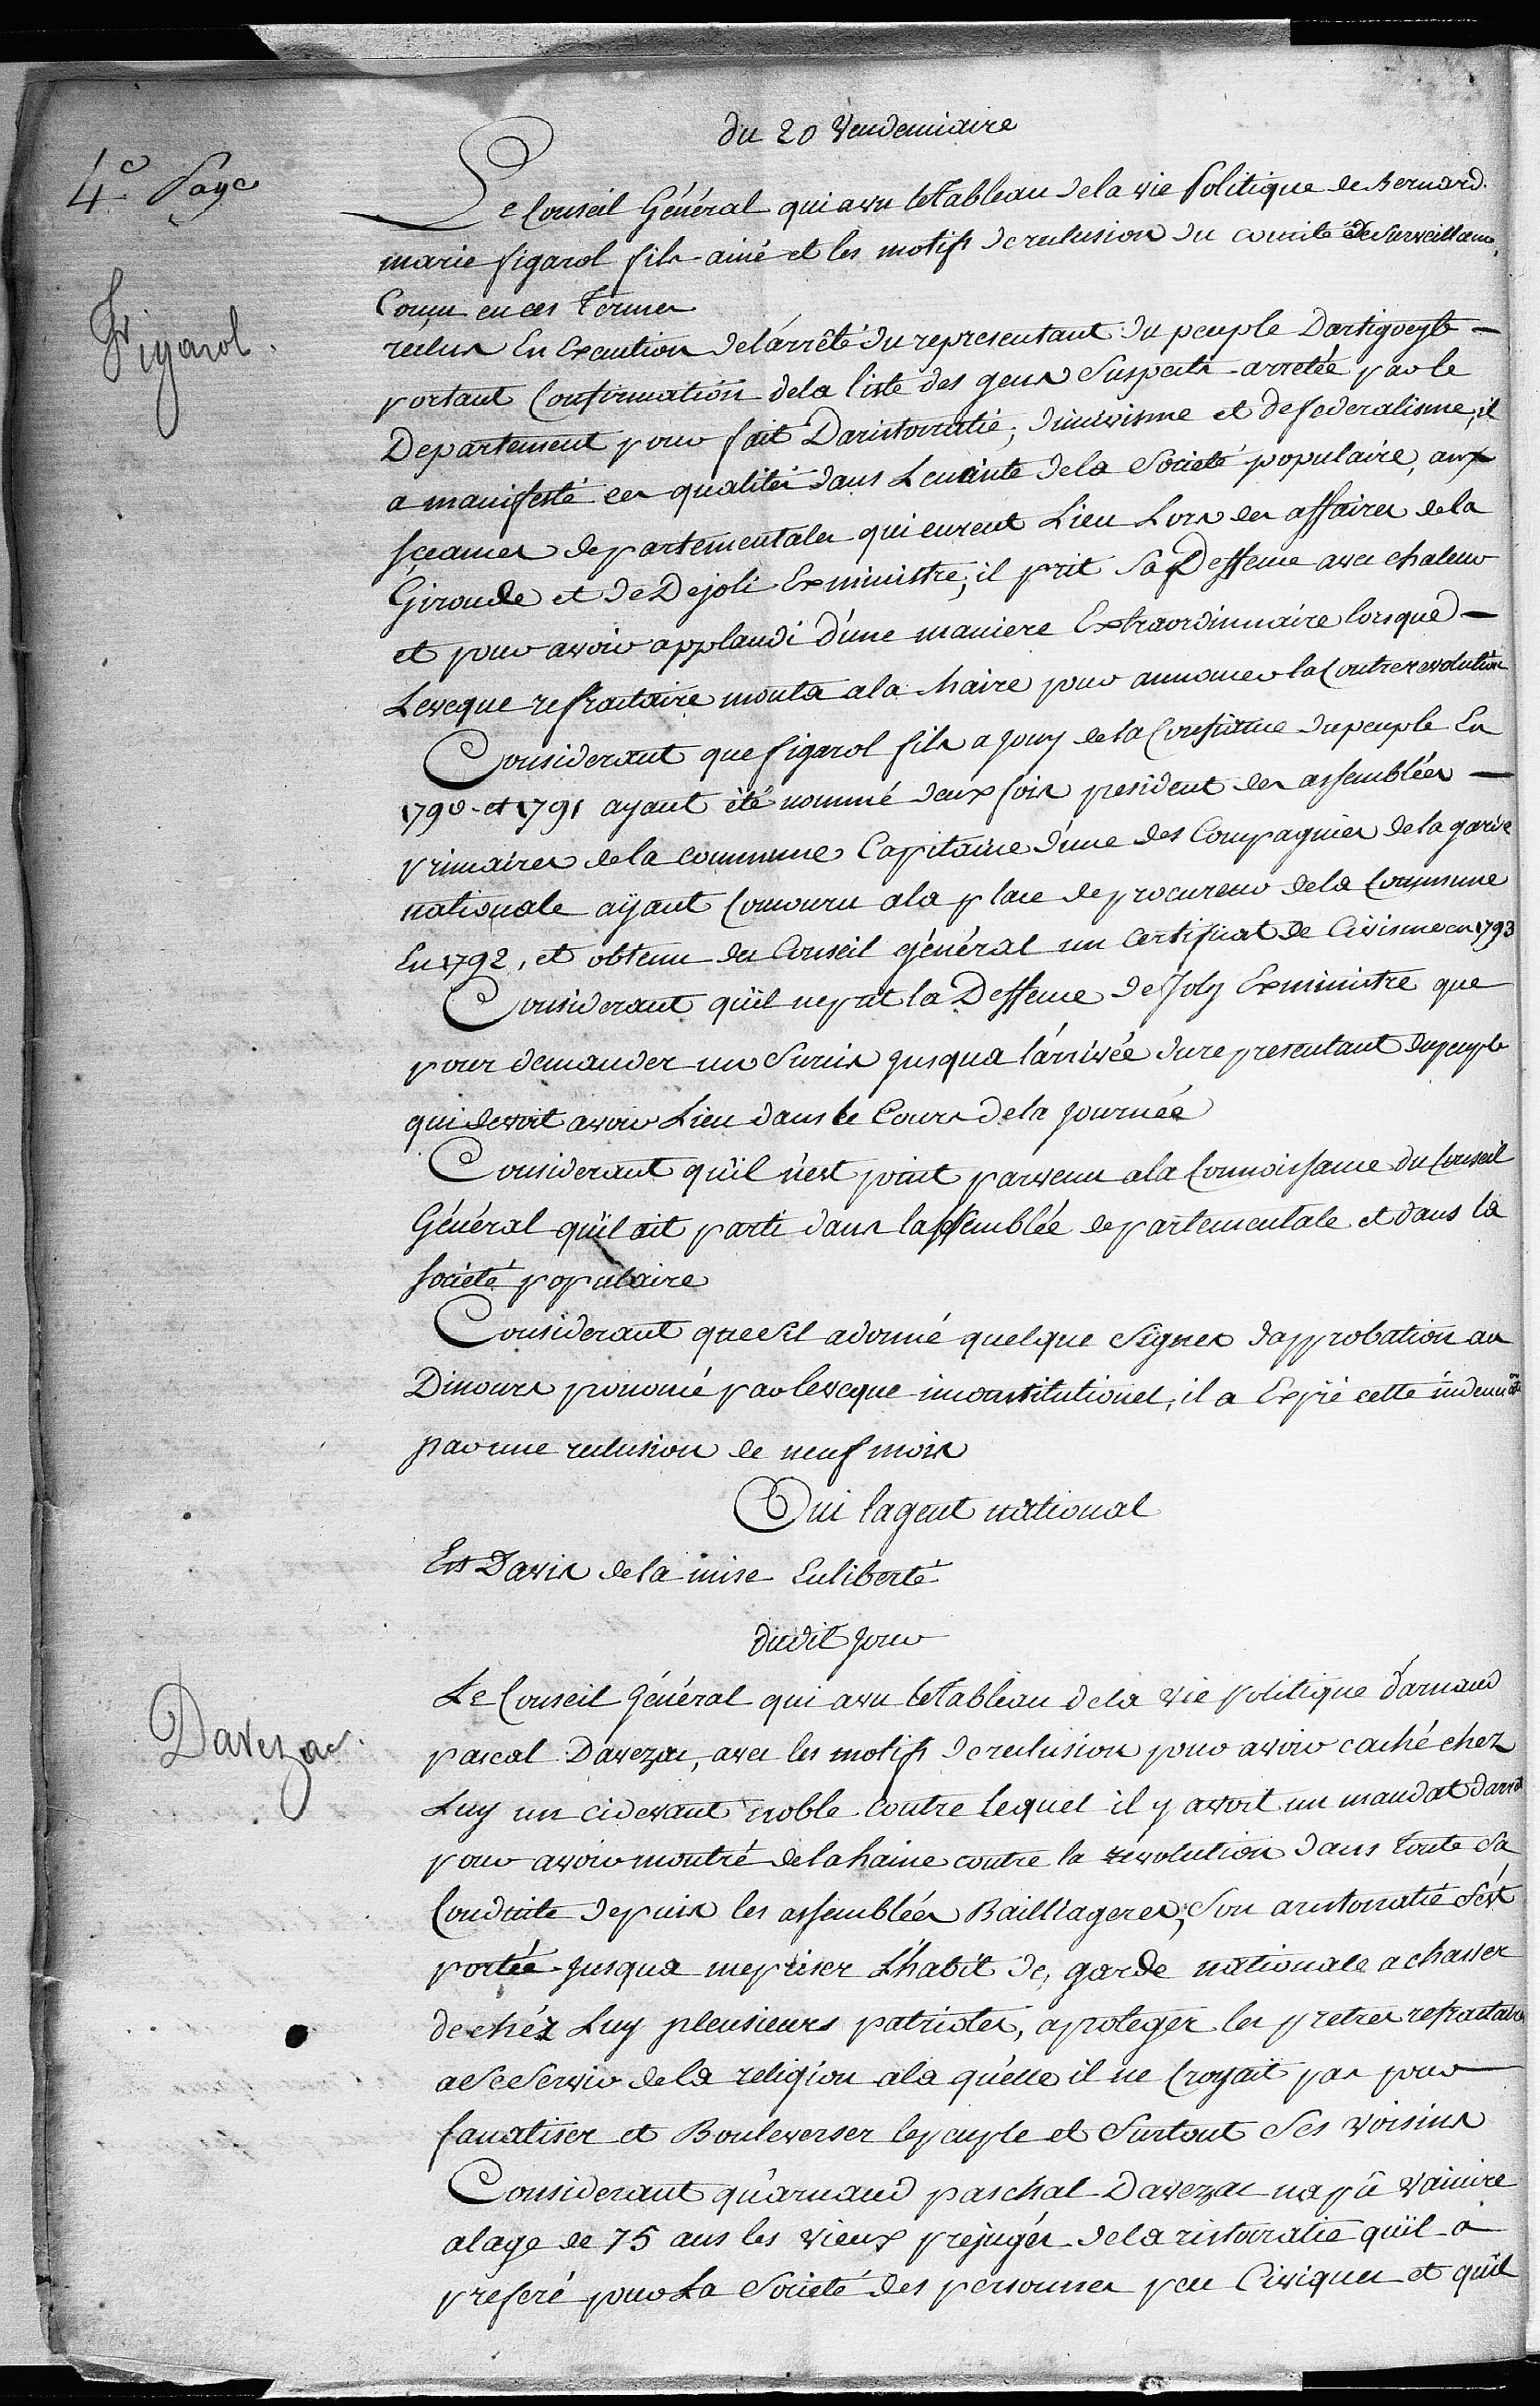 du 20 Vendemiaire
4e Page
Le Conseil Général qui a vu le Tableau de la vie Politique de Bernard
marie figarol fils ainé et les motifs de reclusion du comité de Surveillance,
Figarol.
Conçu en ces Termes
reclus En Execution de l'arrêté du representant du peuple Dartigoeyte -
portant Confirmation de la liste des gens Suspects arretée par le
Departement pour fait Daristocratie, dincivisme et de federalisme, il
a manifesté ces qualités dans Lenceinte de la Societé populaire, aux
sceances departementales qui eurent Lieu Lors des affaires de la
Gironde et de Dejoli Exministre, il prit Sa Deffence avec chaleur
et pour avoir applaudi d'une maniere Extraordinnaire lorsque -
Leveque refractaire monta a la chaire pour annoncer la Contrerevolution
Considerant que figarol fils a jouy de la Confiance du peuple En
1790 et 1791 ayant été nommé deux fois president des assemblées -
primaires de la commune Capitaine d'une des Compagnies de la garde
nationale ayant Concouru a la place de procureur de la Commune
En 1792, et obtenu du Conseil général un Certificat de Civisme en 1793
Considerant qu'il ne prit la Deffence de Joly Exministre que
pour demander un Sursis jusqua l'arrivée du representant du peuple
qui devoit avoir Lieu dans le Cours de la journée
Considerant qu'il n'est point parvenu a la Connoissance du Conseil
Général qu'il ait parlé dans lassemblée departementale et dans la
societé populaire
Considerant que s'il a donné quelque Signes dapprobation au
Discours prononcé par leveque inconstitutionel, il a Expié cette
par une reclusion de neuf mois
Oui lagent national
Est Davis de la mise En liberté
dudit jour
Le Conseil général qui a vu le Tableau de la vie politique d'arnaud
Davezac.
pascal Davezac, avec les motifs de reclusion pour avoir caché chez
Luy un cidevant noble contre lequel il y avoit un mandat darret
pour avoir montré de la haine contre la revolution dans toute Sa
Conduite depuis les assemblées Bailliageres, Son aristocratie s'est
portée jusqua mepriser L'habit de garde nationale a chasser
de chéz Luy pleusieurs patriotes, a proteger les pretres refractaires
a Se Servir de la religion a la quelle il ne Croyait pas pour
fanatiser et Bouleverser le peuple et Surtout Ses voisins
Considerant qu'arnaud paschal Davezac na pû vaincre
a lage de 75 ans les vieux prejugés de laristocratie qu'il a
preferé pour La Societé des personnes peu Civiques et qu'il